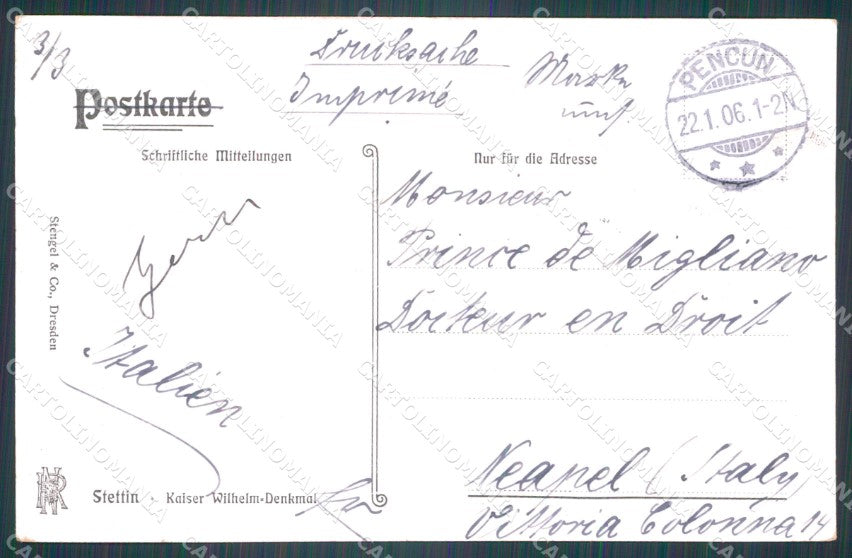 3/3
Drucksache
Imprimé
Marke
umf.
PENCUN
22.1.06.1-2N
Postkarte
Schriftliche Mitteilungen
Nur für die Adresse
Monsieur
Prince de Migliano
Docteur en Droit
Neapel (Italy)
Vittoria Colonna 14
Italien
Stengel & Co., Dresden
Stettin · Kaiser Wilhelm-Denkmal
CARTOLINOMANIA